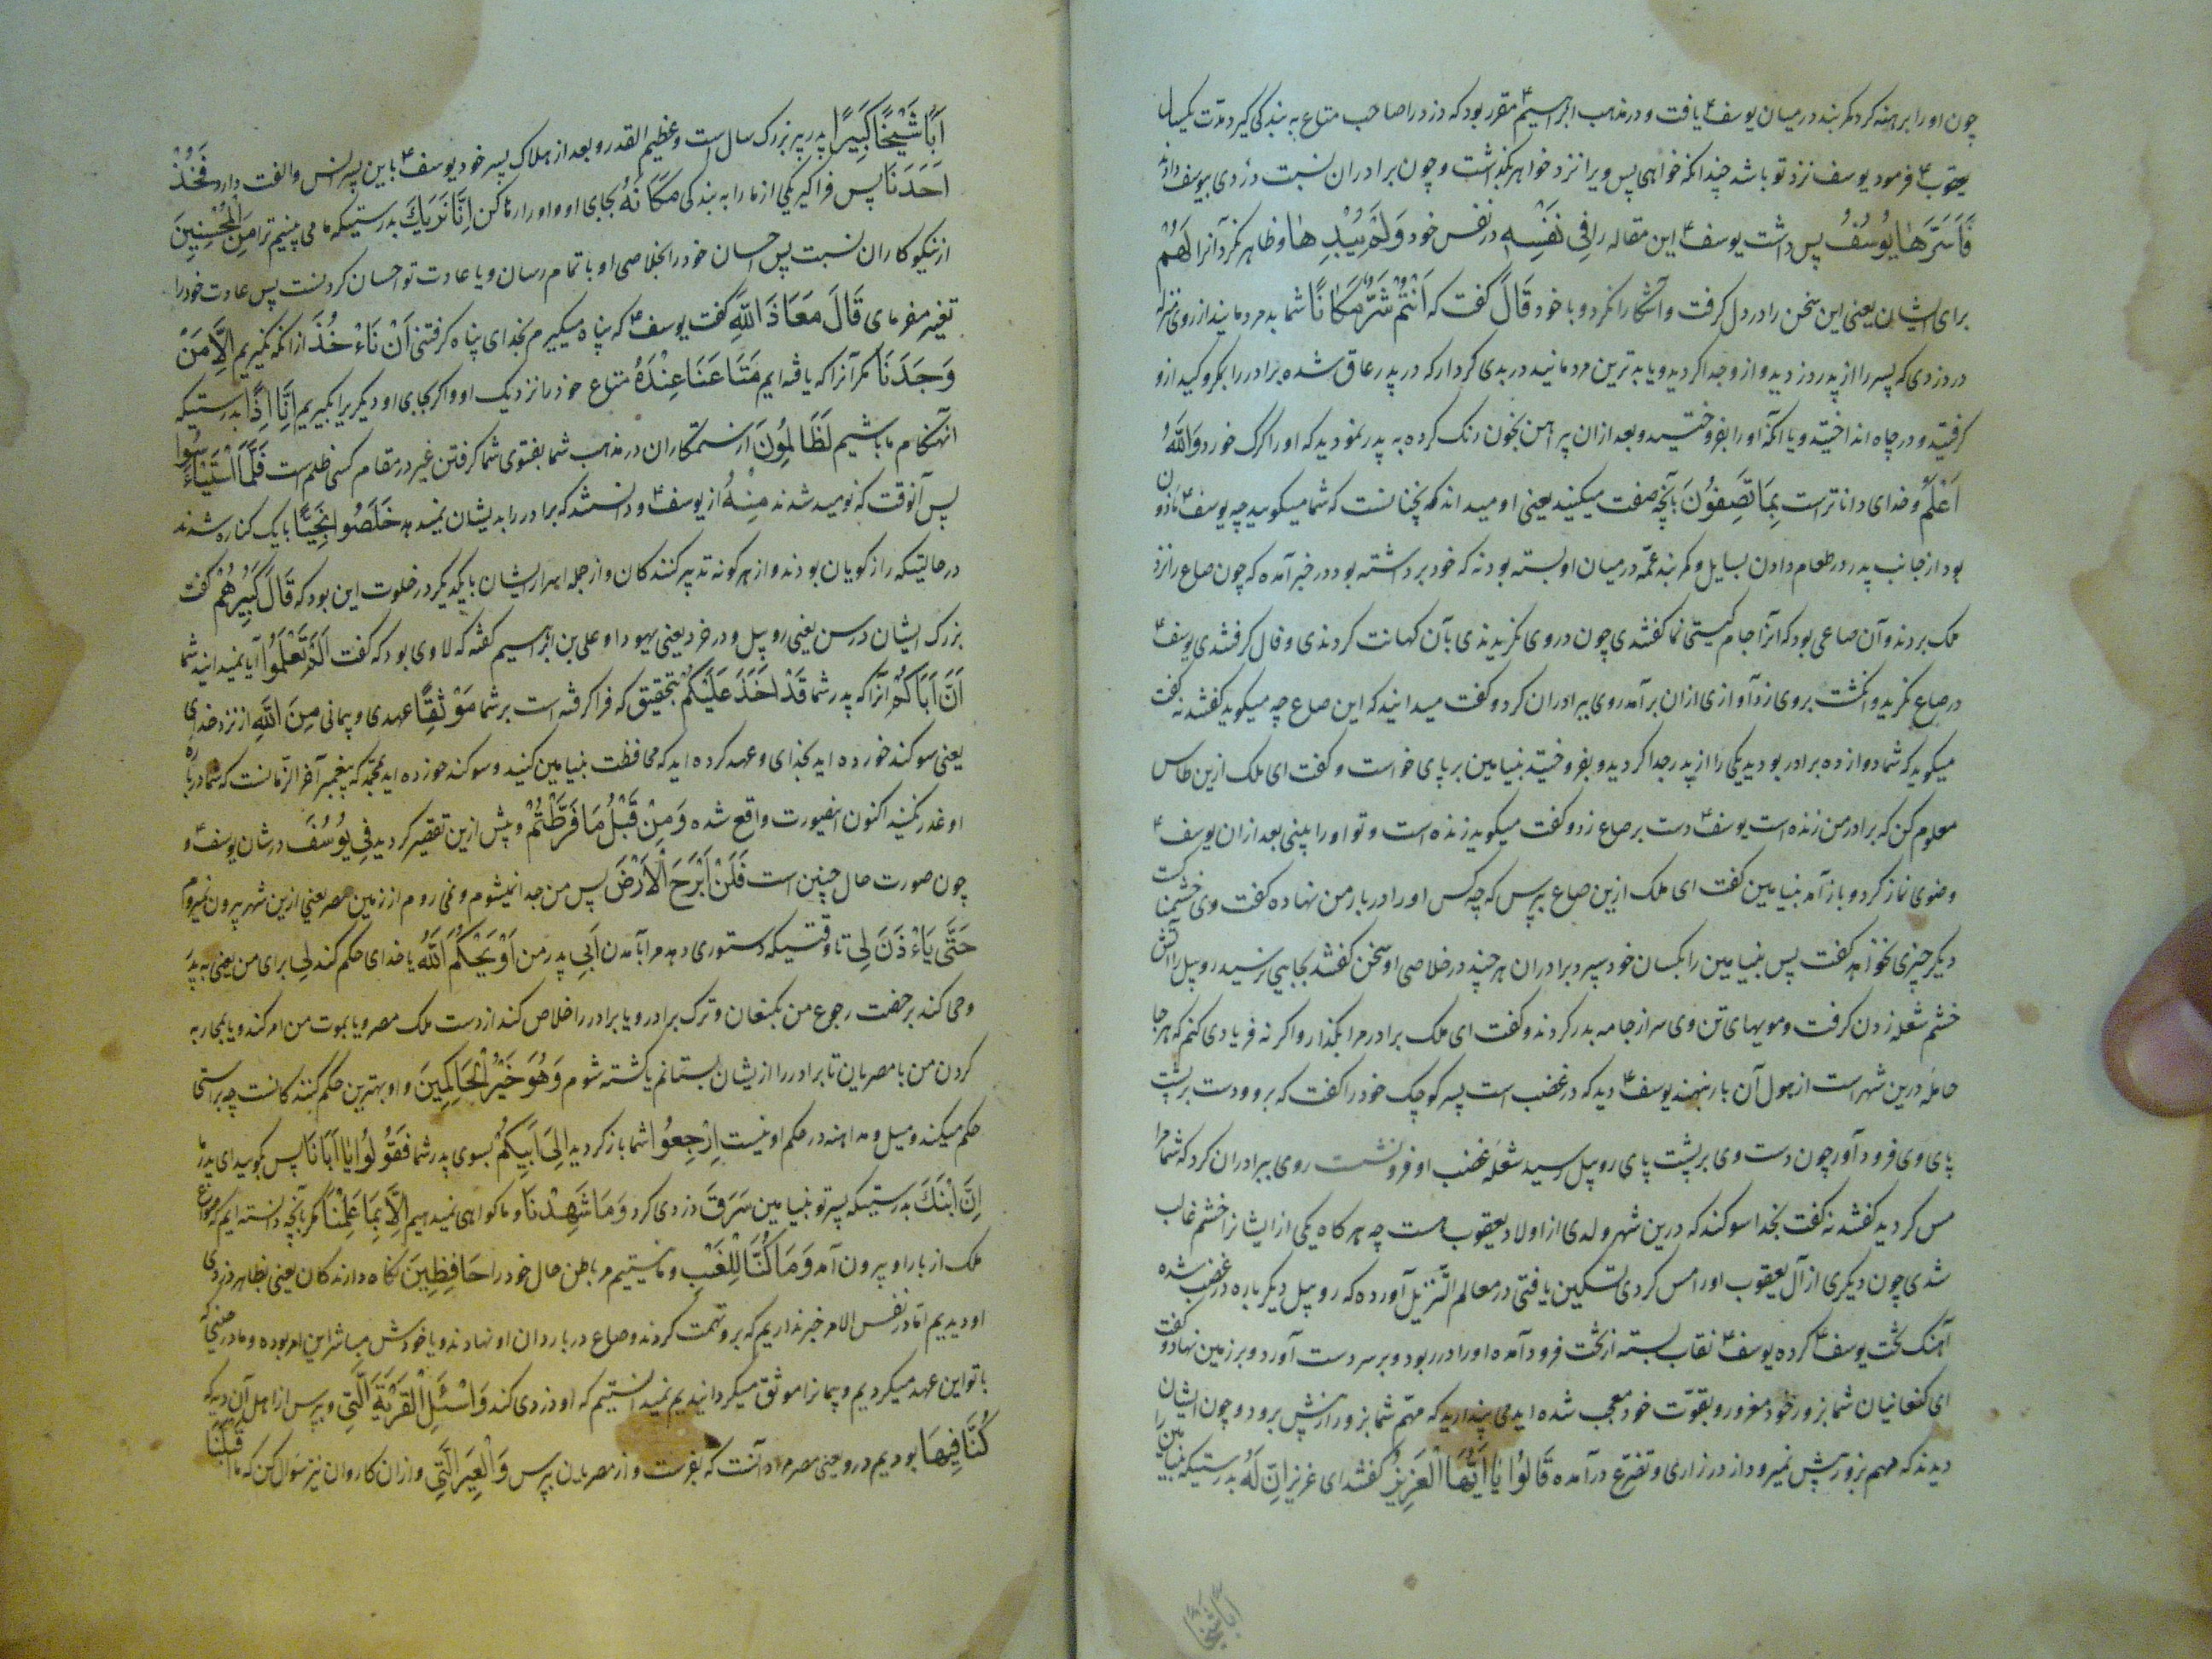 چون او را برهنه کرد کمربند در میان یوسف ع یافت و در مذهب ابراهیم ع مقرر بود که دزد را صاحب متاع به بندگی گیرد مدت یکسال
یعقوب ع فرمود یوسف نزد تو باشد چندانکه خواهی پس ویرا نزد خواهر بگذاشت و چون برادران نسبت دزدی بیوسف دادند
فَاَسَرَّهَا یُوسُفُ پس داشت یوسف ع این مقاله را فِی نَفْسِهِ در نفس خود وَلَمْ یُبْدِهَا و ظاهر نکرد آنرا لَهُمْ
برای ایشان یعنی این سخن را در دل گرفت و آشکارا نکرد و با خود قَالَ گفت که اَنْتُمْ شَرٌّ مَکَانًا شما بد مردمانید از روی منزله
در دزدی که پسر را از پدر دزدیدید و از و جدا کردید و یا بدترین مردمانید در بدی کردار که در پدر عاق شده برادر را بمکر و کید ازو
گرفتید و در چاه انداختید و یا آنکه او را بفروختید و بعد از ان پیراهن بخون رنگ کرده به پدر نمودید که او را گرگ خورد وَاللّٰهُ
اَعْلَمُ و خدای داناتر است بِمَا تَصِفُونَ بآنچه صفت میکنید یعنی او میداند که نچنانست که شما میگویید چه یوسف ع ماذون
بود از جانب پدر در طعام دادن بسایل و کمربند عمّه در میان او بسته بود نه که خود برداشته بود در خبر آمده که چون صاع را نزد
ملک بردند و آن صاعی بود که آنرا جام گیتی نما گفتندی چون در وی نگریدندی بآن کهانت کردندی و فال گرفتندی یوسف ع
در صاع نگرید و انگشت بروی زد آوازی ازان برآمد روی ببرادران کرد و گفت میدانید که این صاع چه میگوید گفتند نه گفت
میگوید که شما دوازده برادر بودید یکی را از پدر جدا کردید و بفروختید بنیامین بر پای خواست و گفت ای ملک ازین طاس
معلوم کن که برادر من زنده است یوسف ع دست بر صاع زد و گفت میگوید زنده است و تو او را بینی بعد ازان یوسف ع
وضوی نماز کرد و باز آمد بنیامین گفت ای ملک ازین صاع بپرس که چه کس او را در بار من نهاده گفت وی خشمناکست
دیگر چیزی نخواهد گفت پس بنیامین را بکسان خود سپرد برادران هر چند در خلاصی او سخن گفتند بجایی نرسید روبیل را آتش
خشم شعله زدن گرفت و مویهای تن وی سر از جامه بدر کردند و گفت ای ملک برادر مرا بگذار و اگر نه فریادی کنم که هر جا
حامله درین شهر است از هول آن بار بنهد یوسف ع دید که در غضب است پسر کوچک خود را گفت که برو و دست بر پشت
پای وی فرود آور چون دست وی بر پشت پای روبیل رسید شعله غضب او فرو نشست روی ببرادران کرد که شما مرا
مس کردید گفتند نه گفت بخدا سوکند که درین شهر ولدی از اولاد یعقوب هست چه هر گاه یکی از ایشانرا خشم غالب
شدی چون دیگری از آل یعقوب او را مس کردی تسکین یافتی در معالم التّنزیل آورده که روبیل دیگر باره در غضب شده
آهنگ تخت یوسف ع کرده یوسف ع نقاب بسته از تخت فرود آمده او را در ربود و بر سر دست آورد و بر زمین نهاد و گفت
ای کنعانیان شما بزور خود مغرور و بقوّت خود معجب شده اید می پندارید که مهمّ شما بزور از پیش برود و چون ایشان
دیدند که مهم بزور پیش نمیرود از در زاری و تضرّع درآمده قَالُوا یَا اَیُّهَا الْعَزِیزُ گفتند ای عزیز اِنَّ لَهُ بدرستیکه بنیامین را
اَبًا شَیْخًا
اَبًا شَیْخًا کَبِیرًا پدر پیر بزرگ سال است و عظیم القدر و بعد از هلاک پسر خود یوسف ع باین پسر انس و الفت دارد فَخُذْ
اَحَدَنَا پس فراگیر یکی از ما را به بندگی مَکَانَهُ بجای او و او را رها کن اِنَّا نَرٰیكَ بدرستیکه ما می بینیم ترا مِنَ الْمُحْسِنِینَ
از نیکوکاران نسبت پس احسان خود را بخلاصی او باتمام رسان و یا عادت تو احسان کردنست پس عادت خود را
تغییر مفرمای قَالَ مَعَاذَ اللّٰهِ گفت یوسف ع که پناه میگیرم بخدای پناه گرفتنی اَنْ نَاْخُذَ از انکه نگیریم اِلَّا مَنْ
وَجَدْنَا مگر آنرا که یافته ایم مَتَاعَنَا عِنْدَهُ متاع خود را نزدیک او و اگر بجای او دیگریرا بگیریم اِنَّا اِذًا بدرستیکه
آنهنگام ما باشیم لَظَالِمُونَ از ستمکاران در مذهب شما بفتوی شما گرفتن غیر در مقام کسی ظلم است فَلَمَّا اسْتَیْاَسُوا
پس آنوقت که نومید شدند مِنْهُ از یوسف ع و دانستند که برادر را بدیشان نمیدهد خَلَصُوا نَجِیًّا با یک کناره شدند
در حالتیکه رازگویان بودند و از هر گونه تدبیر کنندگان و از جمله اسرار ایشان با یکدیگر در خلوت این بود که قَالَ کَبِیرُهُمْ گفت
بزرگ ایشان در سن یعنی روبیل و در خرد یعنی یهودا و علی بن ابراهیم گفته که لاوی بود که گفت اَلَمْ تَعْلَمُوا آیا نمیدانید شما
اَنَّ اَبَاکُمْ آنرا که پدر شما قَدْ اَخَذَ عَلَیْکُمْ بتحقیق که فرا گرفته است بر شما مَوْثِقًا عهدی و پیمانی مِنَ اللّٰهِ از نزد خدای
یعنی سوکند خورده اید بخدای و عهد کرده اید که محافظت بنیامین کنید و سوکند خورده اید بمحمّد که پیغمبر آخر الزمانست که شما درباره
او غدر نکنید اکنون اینصورت واقع شده وَمِنْ قَبْلُ مَا فَرَّطْتُمْ و پیش ازین تقصیر کردید فِی یُوسُفَ در شان یوسف ع و
چون صورت حال چنین است فَلَنْ اَبْرَحَ الْاَرْضَ پس من جدا نمیشوم و نمی روم از زمین مصر یعنی ازین شهر بیرون نمیروم
حَتّٰی یَاْذَنَ لِی تا وقتیکه دستوری دهد مرا بآمدن اَبِی پدر من اَوْ یَحْکُمَ اللّٰهُ یا خدای حکم کند لِی برای من یعنی به پدر
وحی کند بر خفت رجوع من بکنعان و ترک برادر و یا برادر را خلاص کند از دست ملک مصر و یا بموت من امر کند و یا بمحاربه
کردن من با مصریان تا برادر را از یشان بستانم یا کشته شوم وَهُوَ خَیْرُ الْحَاکِمِینَ و او بهترین حکم کنندگانست چه براستی
حکم میکند و میل و مداهنه در حکم او نیست اِرْجِعُوا شما باز گردید اِلٰی اَبِیکُمْ بسوی پدر شما فَقُولُوا یَا اَبَانَا پس بگویید ای پدر ما
اِنَّ ابْنَكَ بدرستیکه پسر تو بنیامین سَرَقَ دزدی کرد وَمَا شَهِدْنَا و ما گواهی نمیدهیم اِلَّا بِمَا عَلِمْنَا مگر بآنچه دانسته ایم که صواع
ملک از بار او بیرون آمد وَمَا کُنَّا لِلْغَیْبِ و ما نیستیم مر باطن حال خود را حَافِظِینَ نگاه دارندگان یعنی بظاهر دزدی
او دیدیم اما در نفس الامر خبر نداریم که برو تهمت کردند و صاع در بار دان او نهادند و یا خودش مباشر این امر بوده و ما در حینی که
با تو این عهد میکردیم و پیمانرا موثق میگردانیدیم نمیدانستیم که او دزدی کند وَاسْئَلِ الْقَرْیَةَ الَّتِی و بپرس از اهل آن دیه که
کُنَّا فِیهَا بودیم درو یعنی مصر مراد آنست که بفرست و از مصریان بپرس وَالْعِیرَ الَّتِی و ازان کاروان نیز سؤال کن که ما اَقْبَلْنَا